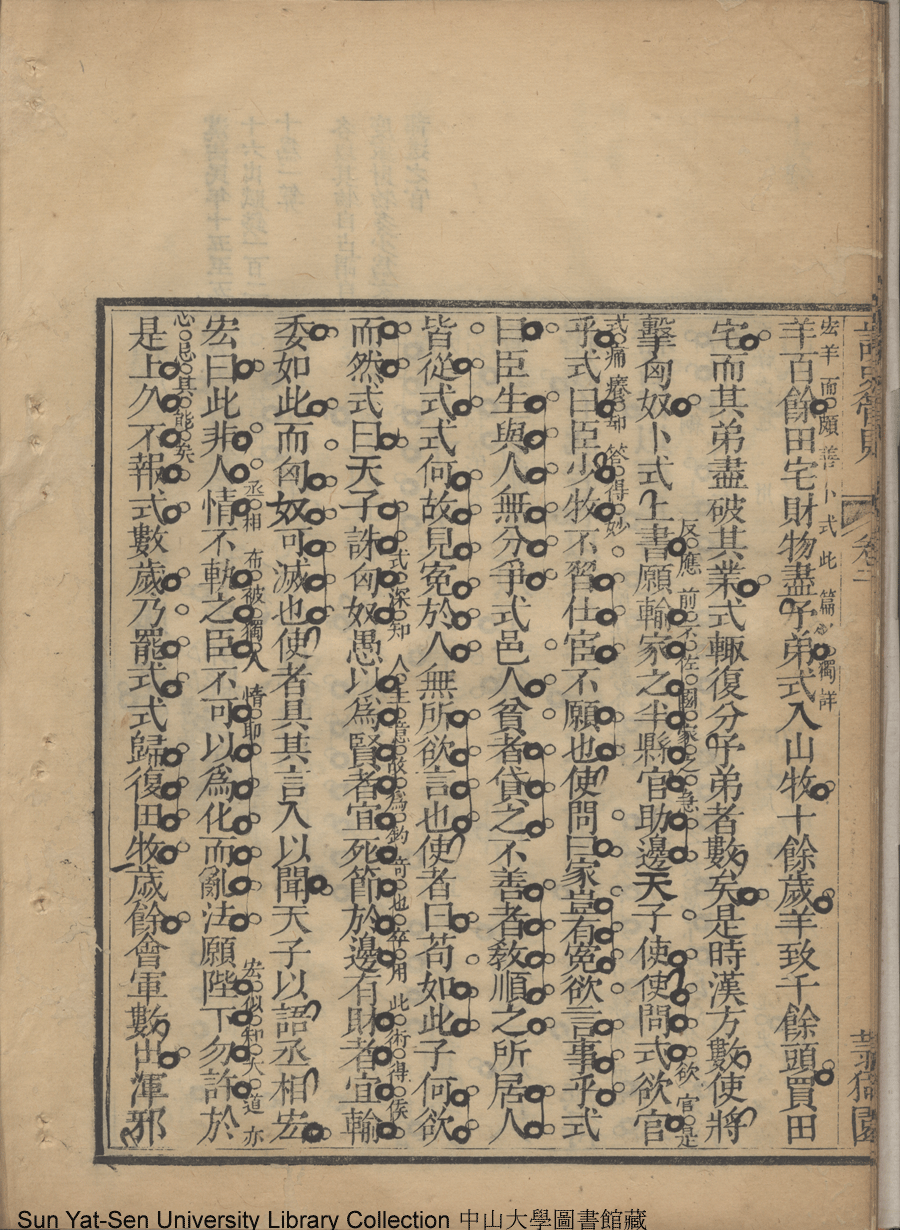 卷二
宏羊面頗善卜式此篇獨詳
羊百餘田宅財物盡予弟式入山牧十餘歲羊致千餘頭買田
宅而其弟盡破其業式輒復分予弟者數矣是時漢方數使將
反應前不佐國家之急 欲官是
擊匈奴卜式上書願輸家之半縣官助邊天子使使問式欲官
式痛癢却答得妙
乎式曰臣少牧不習仕宦不願也使問曰家豈有冤欲言事乎式
曰臣生與人無分爭式邑人貧者貸之不善者教順之所居人
皆從式式何故見冤於人無所欲言也使者曰苟如此子何欲
式深知人主意故為釣奇也卒用此術得侯
而然式曰天子誅匈奴愚以為賢者宜死節於邊有財者宜輸
委如此而匈奴可滅也使者具其言入以聞天子以語丞相宏
丞相布被獨人情耶 宏似知大道亦
宏曰此非人情不軌之臣不可以為化而亂法願陛下勿許於
心忌其能矣
是上久不報式數歲乃罷式式歸復田牧歲餘會軍數出渾邪
Sun Yat-Sen University Library Collection 中山大學圖書館藏